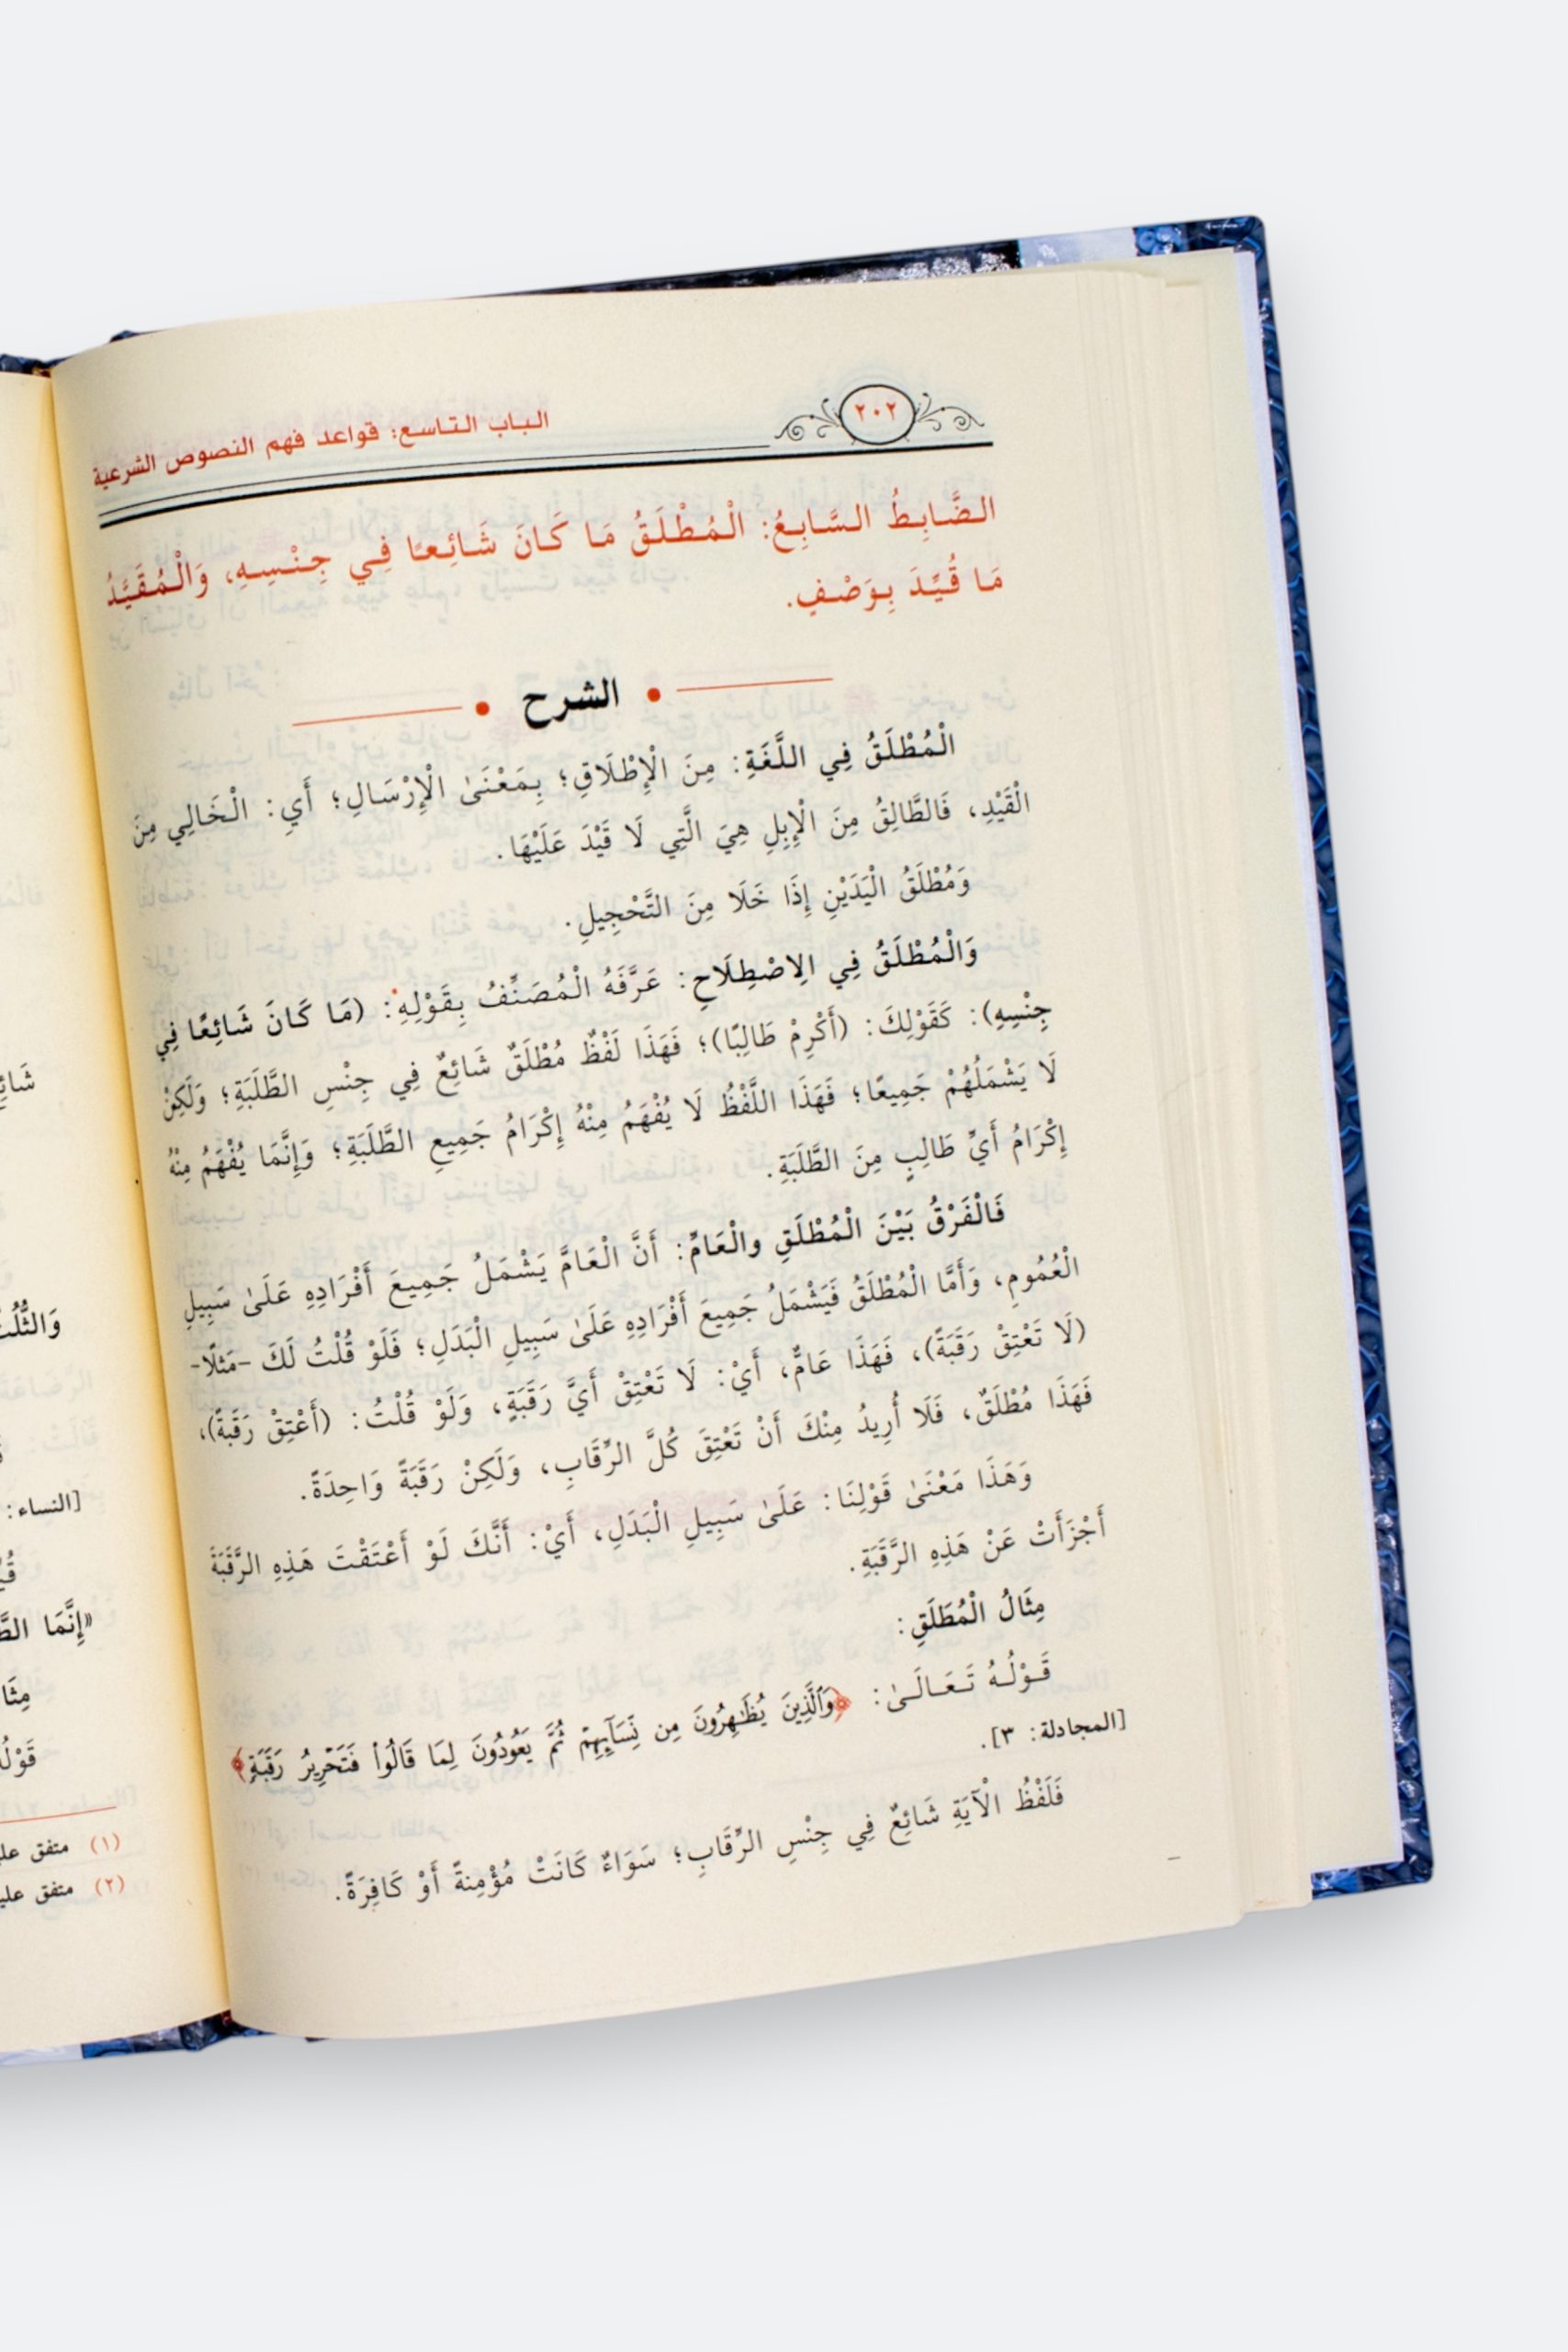 الباب التاسع: قواعد فهم النصوص الشرعية
٢٠٢
الضَّابِطُ السَّابِعُ: الْمُطْلَقُ مَا كَانَ شَائِعًا فِي جِنْسِهِ، وَالْمُقَيَّدُ
مَا قُيِّدَ بِوَصْفٍ.
الشرح
الْمُطْلَقُ فِي اللَّغَةِ: مِنَ الْإِطْلَاقِ؛ بِمَعْنَىٰ الْإِرْسَالِ؛ أَيِ: الْخَالِي مِنَ
الْقَيْدِ، فَالطَّالِقُ مِنَ الْإِبِلِ هِيَ الَّتِي لَا قَيْدَ عَلَيْهَا.
وَمُطْلَقُ الْيَدَيْنِ إِذَا خَلَا مِنَ التَّحْجِيلِ.
وَالْمُطْلَقُ فِي الِاصْطِلَاحِ: عَرَّفَهُ الْمُصَنِّفُ بِقَوْلِهِ: (مَا كَانَ شَائِعًا فِي
جِنْسِهِ): كَقَوْلِكَ: (أَكْرِمْ طَالِبًا)؛ فَهَذَا لَفْظٌ مُطْلَقٌ شَائِعٌ فِي جِنْسِ الطَّلَبَةِ؛ وَلَكِنْ
لَا يَشْمَلُهُمْ جَمِيعًا؛ فَهَذَا اللَّفْظُ لَا يُفْهَمُ مِنْهُ إِكْرَامُ جَمِيعِ الطَّلَبَةِ؛ وَإِنَّمَا يُفْهَمُ مِنْهُ
إِكْرَامُ أَيِّ طَالِبٍ مِنَ الطَّلَبَةِ.
فَالْفَرْقُ بَيْنَ الْمُطْلَقِ والْعَامِّ: أَنَّ الْعَامَّ يَشْمَلُ جَمِيعَ أَفْرَادِهِ عَلَىٰ سَبِيلِ
الْعُمُومِ، وَأَمَّا الْمُطْلَقُ فَيَشْمَلُ جَمِيعَ أَفْرَادِهِ عَلَىٰ سَبِيلِ الْبَدَلِ؛ فَلَوْ قُلْتُ لَكَ -مَثلًا-
(لَا تَعْتِقْ رَقَبَةً)، فَهَذَا عَامٌّ، أَيْ: لَا تَعْتِقْ أَيَّ رَقَبَةٍ، وَلَوْ قُلْتُ: (أَعْتِقْ رَقَبَةً)،
فَهَذَا مُطْلَقٌ، فَلَا أُرِيدُ مِنْكَ أَنْ تَعْتِقَ كُلَّ الرِّقَابِ، وَلَكِنْ رَقَبَةً وَاحِدَةً.
وَهَذَا مَعْنَىٰ قَوْلِنَا: عَلَىٰ سَبِيلِ الْبَدَلِ، أَيْ: أَنَّكَ لَوْ أَعْتَقْتَ هَذِهِ الرَّقَبَةَ
أَجْزَأَتْ عَنْ هَذِهِ الرَّقَبَةِ.
مِثَالُ الْمُطَلَقِ:
قَوْلُهُ تَعَالَىٰ: ﴿وَالَّذِينَ يُظَٰهِرُونَ مِن نِّسَآئِهِمْ ثُمَّ يَعُودُونَ لِمَا قَالُوا۟ فَتَحْرِيرُ رَقَبَةٍ﴾
[المجادلة: ٣].
فَلَفْظُ الْآيَةِ شَائِعٌ فِي جِنْسِ الرِّقَابِ؛ سَوَاءٌ كَانَتْ مُؤْمِنةً أَوْ كَافِرَةً.
[النساء:
«إِنَّمَا
(١) متفق
(٢) متفق